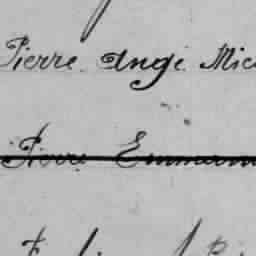 Pierre Ange Mic
Pierre Emmanu